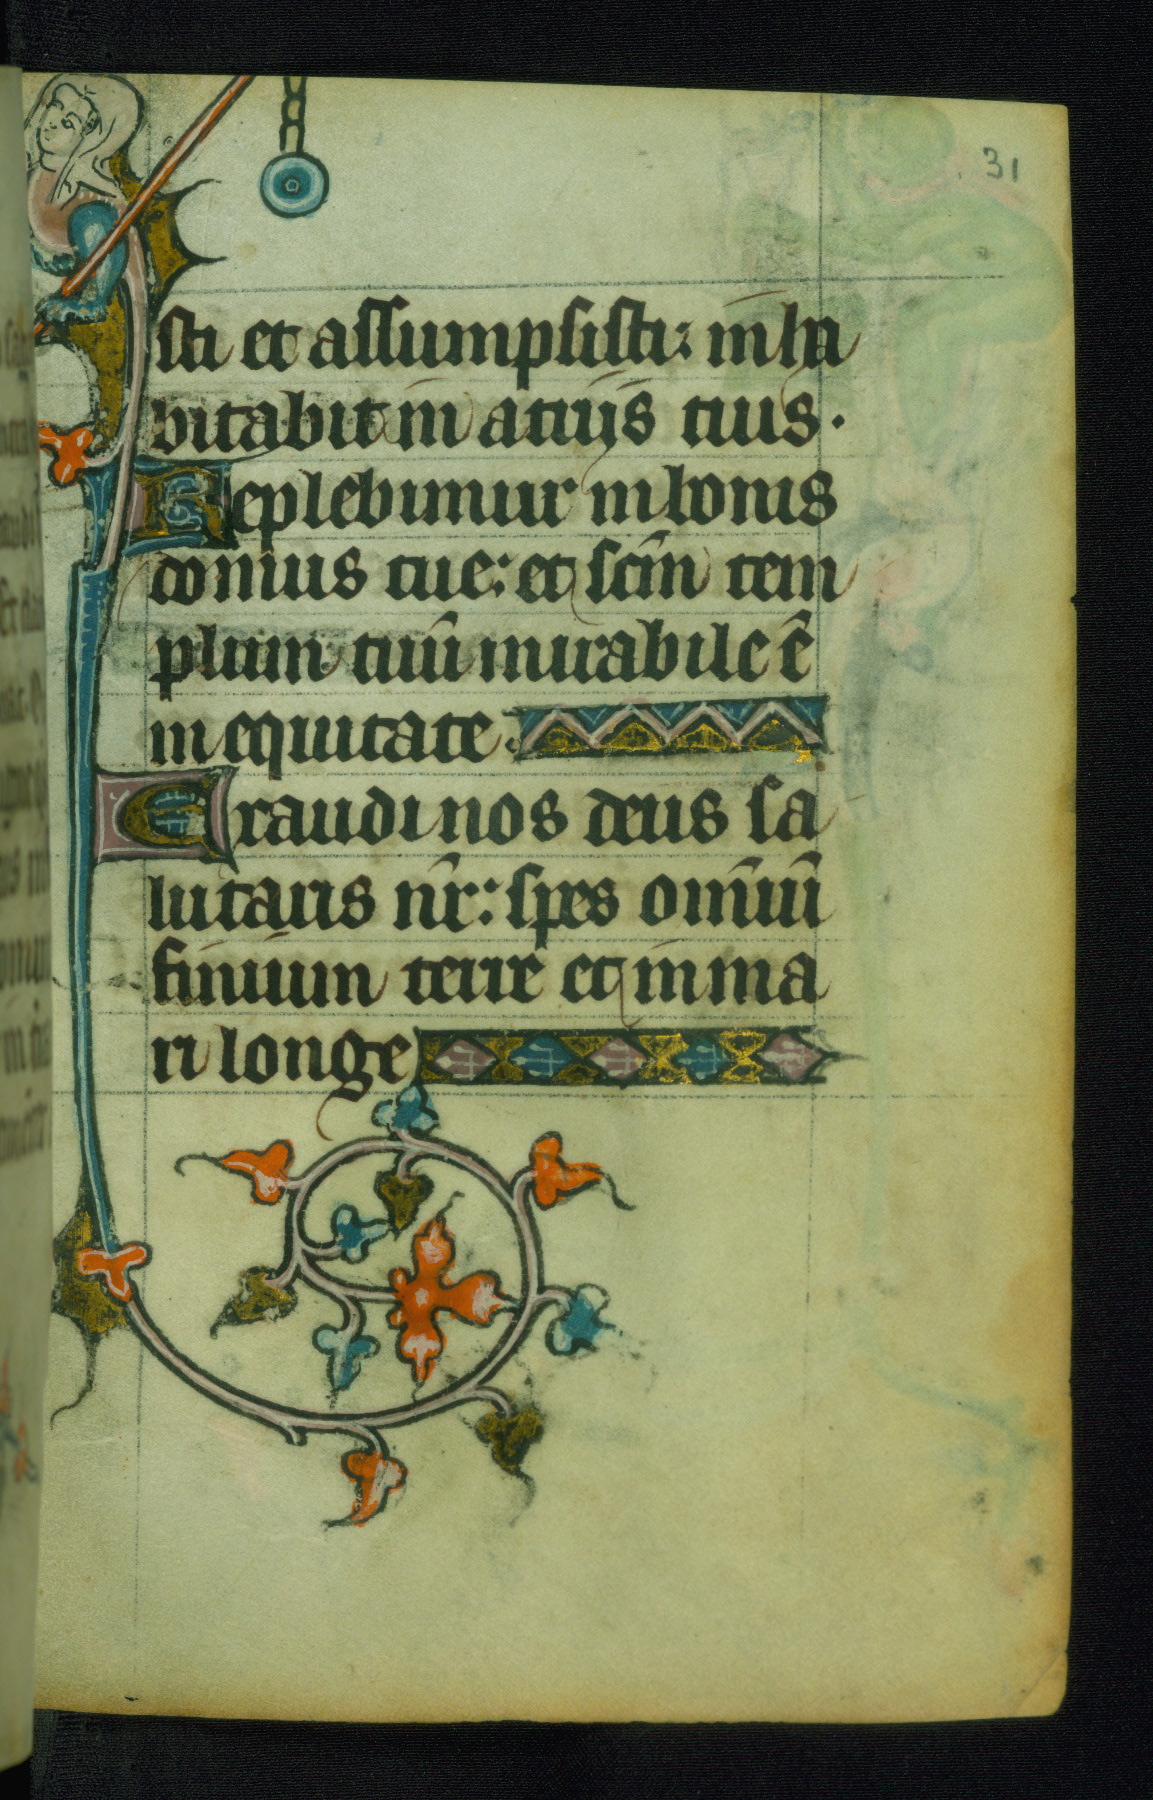 31
sti et assumpsisti: inha
bitabit in atrijs tuis.
Replebimur in bonis
domus tue: et scm̄ tem
plum tuū mirabile ē
in equitate.
Exaudi nos deus sa
lutaris nr̄: spes omniū
finium terre et in ma
ri longe